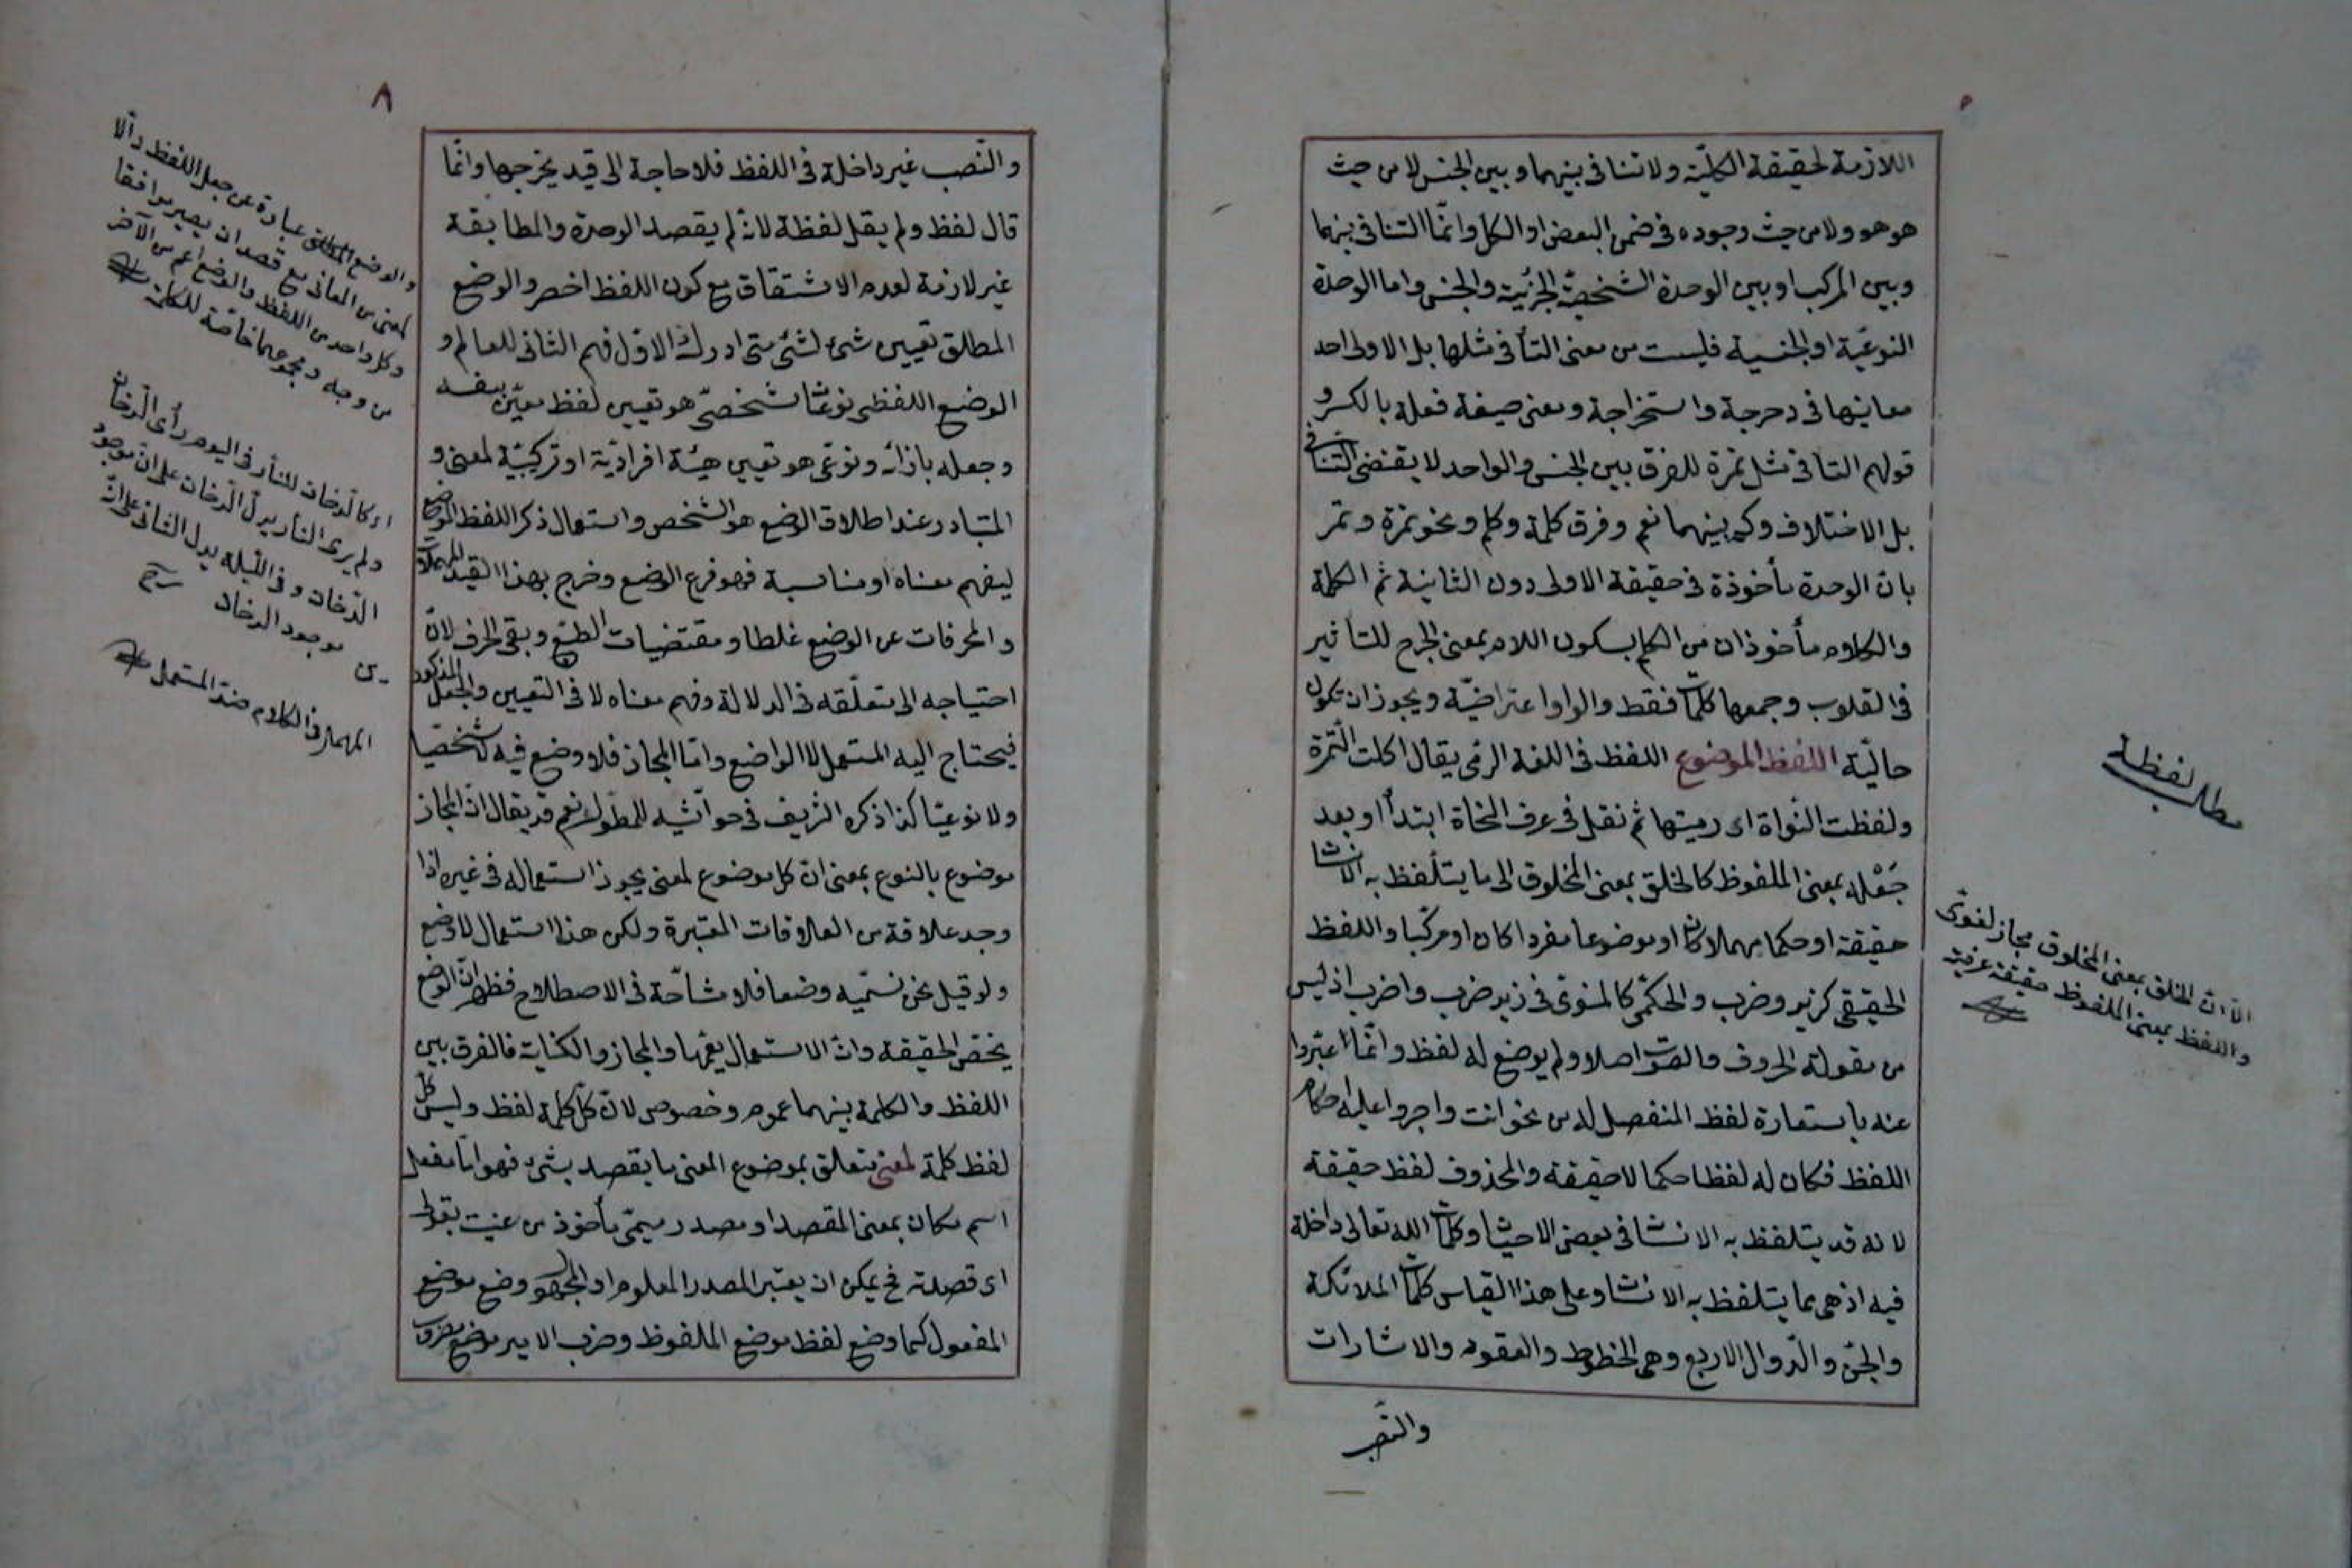 اللازمة لحقيقة الكليّة ولا تنافى بينهما وبين الجنس لا من حيث
هو هو ولا من حيث وجوده فى ضمن البعض او الكل وانّما التنافى بينهما
وبين المركب او بين الوحدة الشخصيّة الجزئية والجنس واما الوحدة
النوعيّة او الجنسية فليست من معنى التأ فى مثلها بل الاولى احد
معانيها فى دحرجة واستخراجة ومعنى صيغة فعلة بالكسر و
قولهم التأ فى مثل تمرة للفرق بين الجنس والواحد لا يقتضى التنافى
بل الاختلاف وكم بينهما نعم وفرق كلمة وكلم ونحو تمرة وتمر
بان الوحدة مأخوذة فى حقيقة الاولى دون الثانية ثم الكلمة
والكلام مأخوذان من الكلم بسكون اللام بمعنى الجرح للتاثير
فى القلوب وجمعها كلمات فقط والواو اعتراضيّة ويجوز ان تكون
حاليّة اللفظ الموضوع اللفظ فى اللغة الرمى يقال اكلت التّمرة
ولفظت النّواة اى رميتها ثم نقل فى عرف النحاة ابتدأ او بعد
جَعْله بمعنى الملفوظ كالخلق بمعنى المخلوق الى ما يتلفظ به الانسان
حقيقة او حكما مهملا كان او موضوعا مفردا كان او مركّبا واللفظ
الحقيقى كزيد وضرب والحكمّى كالمنوىّ فى زيد ضرب واضرب اذ ليس
من مقولة الحروف والصّوت اصلا ولم يوضع له لفظ وانّما عبّروا
عنه باستعارة لفظ المنفصل له من نحو انت واجروا عليه احكام
اللفظ فكان له لفظا حكما لا حقيقة والمحذوف لفظ حقيقة
لانه قد يتلفظ به الانسان فى بعض الاحيان وكلمات الله تعالى داخلة
فيه اذ هى مما يتلفظ به الانسان وعلى هذا القياس كلمات الملائكة
والجنّ والدّوال الاربع وهى الخطوط والعقود والاشارات
والنّصب
مطلب لفظة
الّا انّ الخلق بمعنى المخلوق مجاز لغوىّ
واللفظ بمعنى الملفوظ حقيقة عرفية
٨
والنّصب غير داخلة فى اللفظ فلا حاجة الى قيد يخرجها وانّما
قال لفظ ولم يقل لفظة لانه لم يقصد الوحدة والمطابقة
غير لازمة لعدم الاشتقاق مع كون اللفظ اخصر والوضع
المطلق تعيين شئ لشئ متى ادرك الاول فهم الثانى للعالم و
الوضع اللفظى نوعان شخصىّ هو تعيين لفظ معيّن بنفسه
وجعله بازائه ونوعّى هو تعيين هيئة افراديّة او تركيبيّة لمعنى و
المتبادر عند اطلاق الوضع هو الشخص واستعمال ذكر اللفظ الموضوع
ليفهم معناه او مناسبة فهو فرع الوضع وخرج بهذا القيد المهملات
والمحرفات عن الوضع غلطا ومقتضيات الطبع وبقى الحرف لانّ
احتياجه الى متعلّقه فى الدلالة وفهم معناه لا فى التعيين والجعل المذكور
فيحتاج اليه المستعمل لا الواضع وامّا المجاز فلا وضع فيه لا شخصيّا
ولا نوعيّا كذا ذكره الشريف فى حواشيه للمطوّل نعم قد يقال انّ المجاز
موضوع بالنوع بمعنى انّ كل موضوع لمعنى يجوز استعماله فى غيره اذا
وجد علاقة من العلاقات المعتبرة ولكن هذا استعمال لا وضع
ولو قيل نحن نسمّيه وضعا فلا مشاحّة فى الاصطلاح فظهر انّ الوضع
يخصّ الحقيقة وانّ الاستعمال يعمّها والمجاز والكناية فالفرق بين
اللفظ والكلمة بينهما عموم وخصوص لانّ كلّ كلمة لفظ وليس كلّ
لفظ كلمة لمعنى متعلق بموضوع المعنى ما يقصد بشئ فهو امّا مفعل
اسم مكان بمعنى المقصد او مصدر ميمىّ مأخوذ من عنيت بقولى
اى قصدته فح يمكن ان يعتبر المصدر المعلوم او المجهول وضع موضع
المفعول كما وضع لفظ موضع الملفوظ وضرب الامير موضع مضروب
والوضع المطلق عبارة عن جعل اللفظ دالا
لمعنى من المعانى مع قصد ان يصير موافقا
وكل واحد من اللفظ والوضع اعم من الآخر
من وجه ومجموعهما خاصّة للكلمة
او كالدّخان للنأر فى اليوم رأى الدّخان
ولم يرى النأر يدل الدّخان على انّ موجود
الدّخان وفى الليلة يدل الثانى على انّ
موجود الدخان
المهمل فى الكلام ضدّ المستعمل